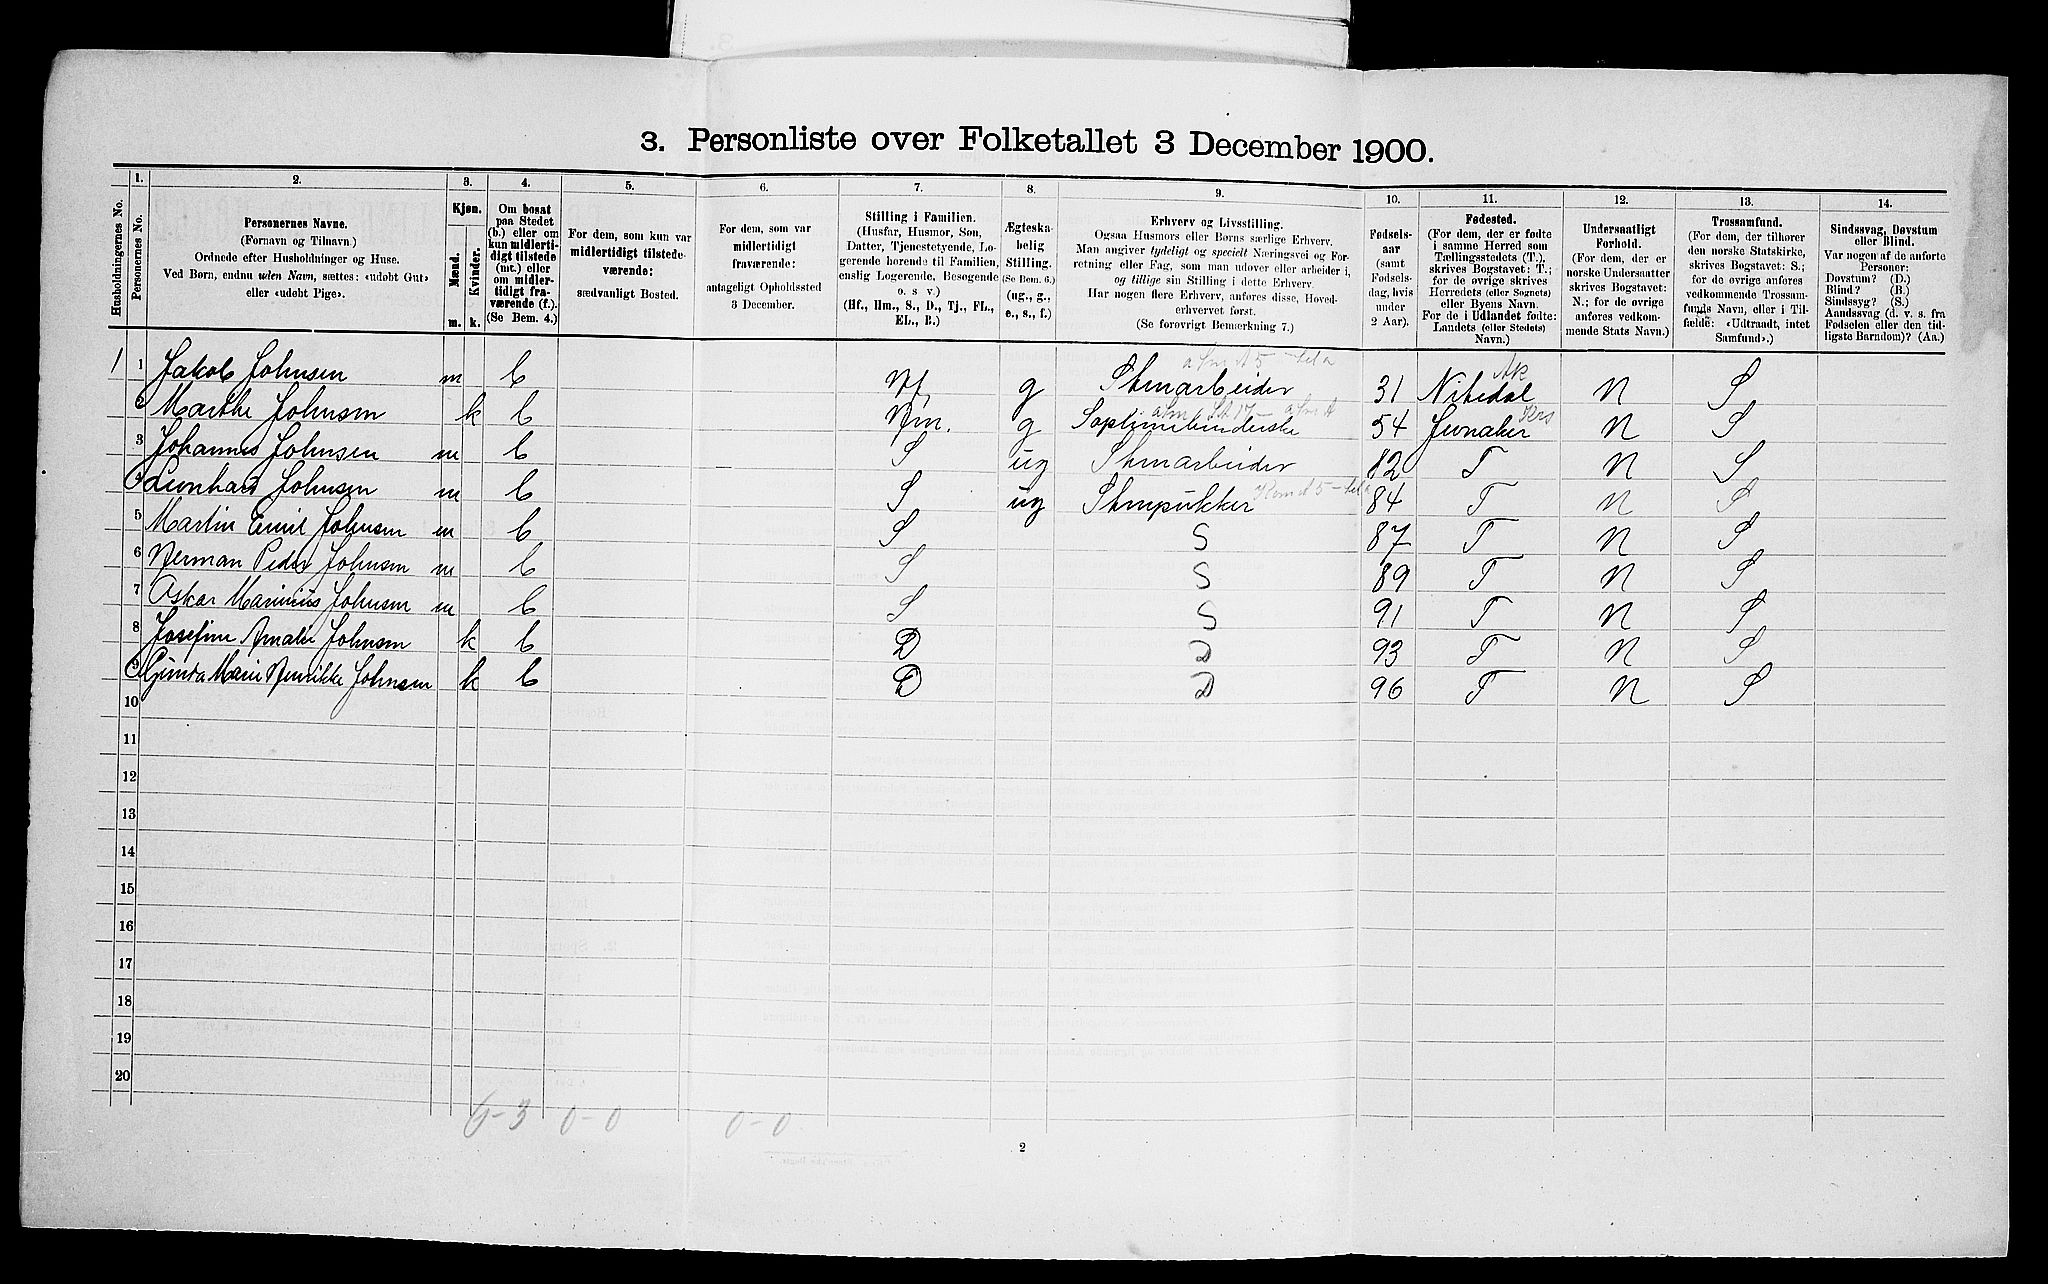 3. Personliste over Folketallet 3 December 1900.
1. 2. 3. 4. 5. 6. 7. 8. 9. 10. 11. 12. 13. 14.
Husholdningernes No.
Personernes No.
Personernes Navne.
(Fornavn og Tilnavn.)
Ordnede efter Husholdninger og Huse.
Ved Børn, endnu uden Navn, sættes: «udøbt Gut»
eller «udøbt Pige».
Kjøn.
Mænd.
Kvinder.
m. k.
Om bosat
paa Stedet
(b.) eller om
kun midlerti-
digt tilstede
(mt.) eller
om midler-
tidigt fra-
værende (f.).
(Se Bem. 4.)
For dem, som kun var
midlertidigt tilstede-
værende:
sædvanligt Bosted.
For dem, som var
midlertidigt
fraværende:
antageligt Opholdssted
3 December.
Stilling i Familien.
(Husfar, Husmor, Søn,
Datter, Tjenestetyende, Lo-
gerende hørende til Familien,
enslig Logerende, Besøgende
o. s v.)
(Hf., Hm., S., D., Tj., FL.,
EL., B.)
Ægteska-
belig
Stilling.
(Se Bem. 6.)
(ug., g.,
e., s., f.)
Erhverv og Livsstilling.
Ogsaa Husmors eller Børns særlige Erhverv.
Man angiver tydeligt og specielt Næringsvei og For-
retning eller Fag, som man udøver eller arbeider i,
og tillige sin Stilling i dette Erhverv.
Har nogen flere Erhverv, anføres disse, Hoved-
erhvervet først.
(Se forøvrigt Bemærkning 7.)
Fødsels-
aar
(samt
Fødsels-
dag, hvis
under
2 Aar).
Fødested.
(For dem, der er fødte
i samme Herred som
Tællingsstedets (T.),
skrives Bogstavet: T.;
for de øvrige skrives
Herredets (eller Sognets)
eller Byens Navn.
For de i Udlandet fødte:
Landets (eller Stedets)
Navn.)
Undersaatligt
Forhold.
(For dem, der er
norske Undersaatter
skrives Bogstavet:
N.; for de øvrige
anføres vedkom-
mende Stats Navn.)
Trossamfund.
(For dem, der tilhører
den norske Statskirke,
skrives Bogstavet: S.;
for de øvrige anføres
vedkommende Trossam-
funds Navn, eller i Til-
fælde: «Udtraadt, intet
Samfund».)
Sindssvag, Døvstum
eller Blind.
Var nogen af de anførte
Personer:
Døvstum? (D.)
Blind? (B.)
Sindssyg? (S.)
Aandssvag (d. v. s. fra
Fødselen eller den tid-
ligste Barndom)? (Aa.)
1 1 Jakob Johnsen m b Hf. g Stenarbeider 31 Nitedal Ak N S
2 Marthe Johnsen k b Hm. g 54 Jevnaker Krs N S
3 Johannes Johnsen m b S ug Stenarbeider 82 T N S
Leonhard Johnsen m b S ug Stenpukker 84 T N S
5 Martin Emil Johnsen m b S S 87 T N S
6 Herman Peder Johnsen m b S S 89 T N S
7 Oskar Marinius Johnsen m b S S 91 T N S
8 Josefine Amalie Johnsen k b D D 93 T N S
9 Gunda Marie Henrikke Johnsen k b D D 96 T N S
10
11
12
13
14
15
16
17
18
19
20
6-3 0-0 0-0
2